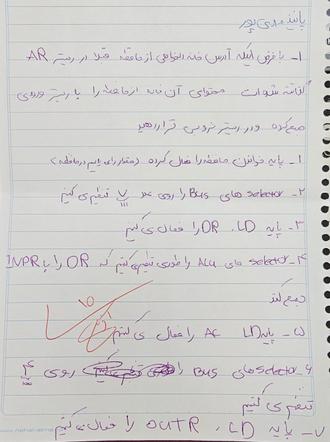 پانیذ مهدی پور
۱- با فرض اینکه آدرس خانه دلخواهی از حافظه قبلا در رجیستر AR
گذاشته شده است محتوای آن خانه از حافظه را با رجیستر ورودی
جمع کرده و در رجیستر خروجی قرار دهید
۱- پایه خواندن حافظه را فعال کرده (مقدار را می‌بریم در حافظه)
۲- selector های Bus را روی عدد ۷ تنظیم می کنیم
۳- پایه LD ، DR را فعال می کنیم
۴- selector های ALU را طوری تنظیم می کنیم که DR را با INPR
جمع کند
۵- پایه LD AC را فعال می کنیم
۱۰
۶- selector های Bus را روی ۴
تنظیم می کنیم
۷- پایه LD ، OUTR را فعال می کنیم